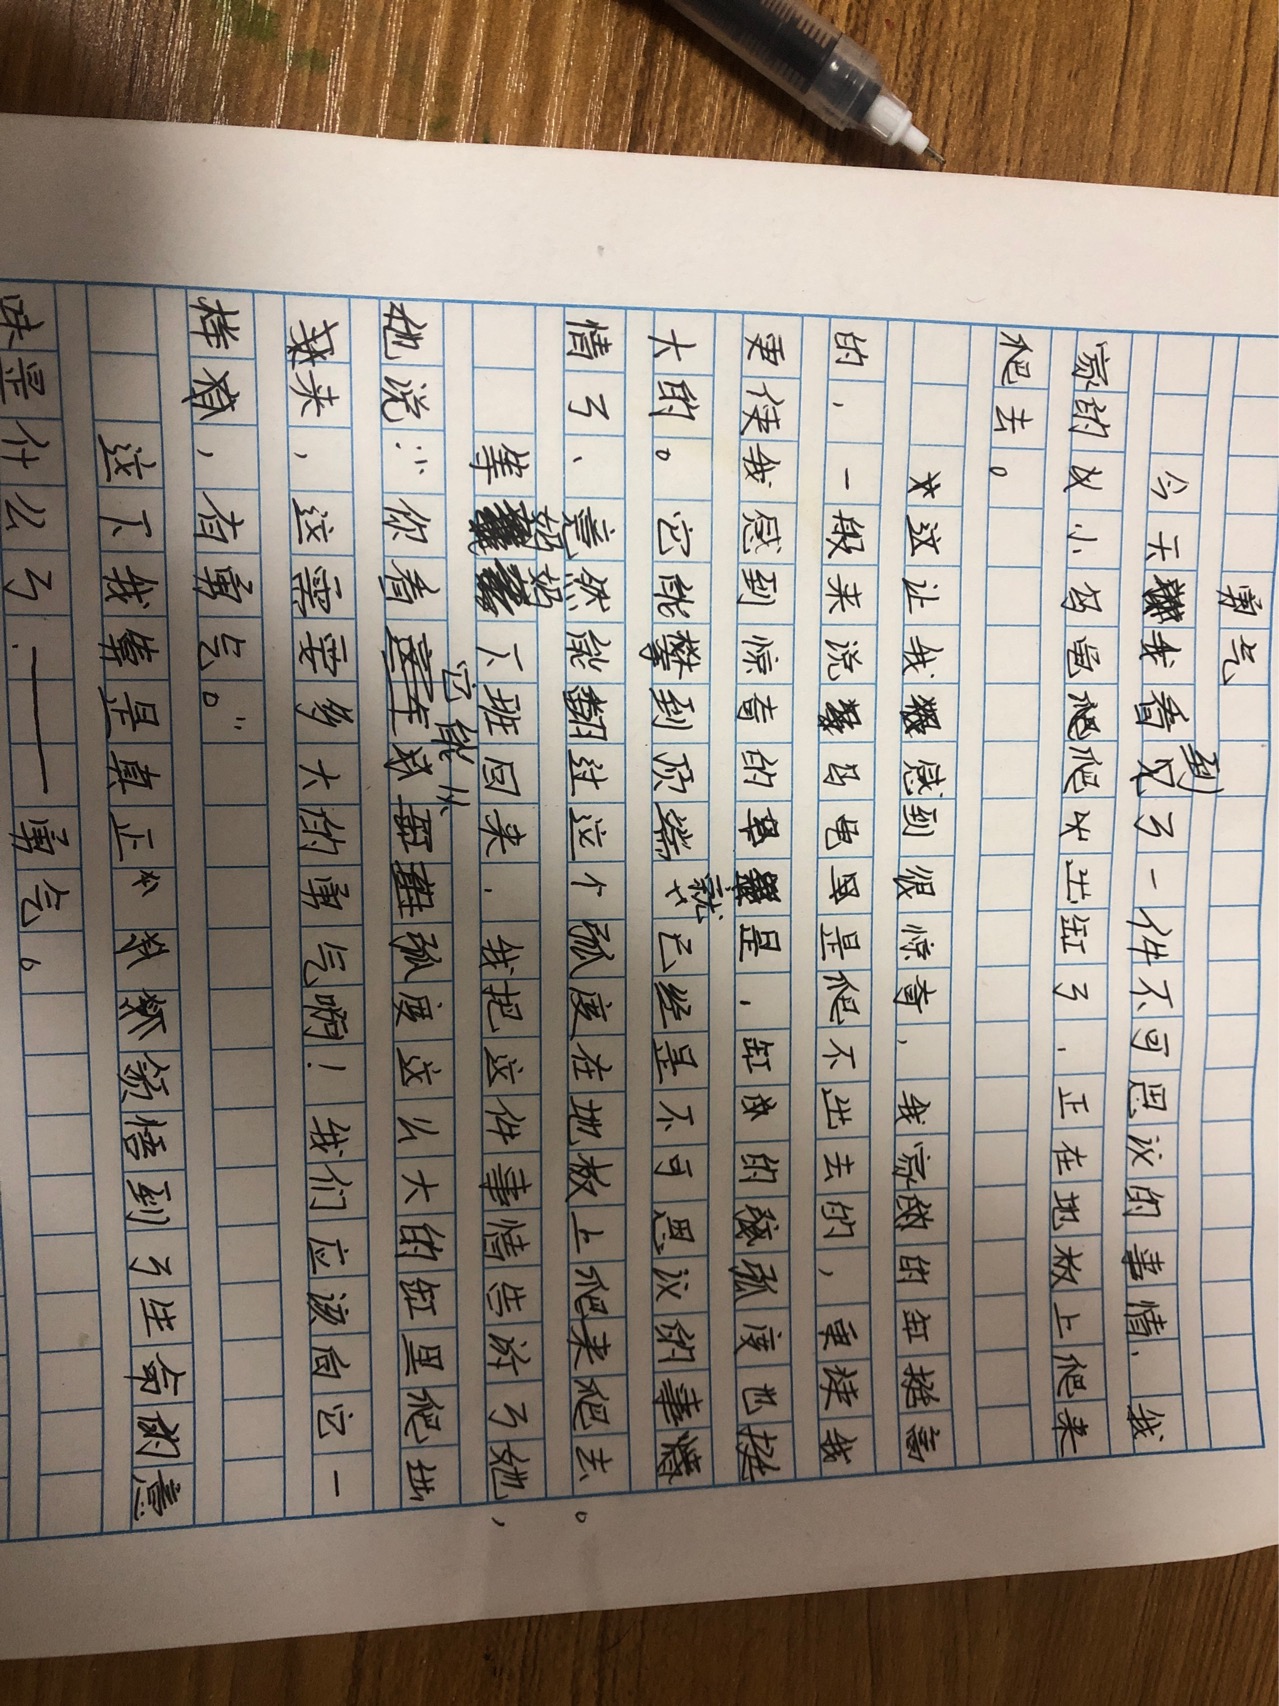 勇气
今天我看到了一件不可思议的事情,我
家的小乌龟爬出缸了,正在地板上爬来
爬去。
这让我感到很惊奇,我家的缸挺高
的,一般来说乌龟是爬不出去的,更使我
更使我感到惊奇的是,缸的弧度也挺
大的。它能攀到顶端就已经是不可思议的事情
情了、竟然能翻过这个弧度在地板上爬来爬去。
等妈妈下班回来,我把这件事情告诉了她,
她说:“你看它能从弧度这么大的缸里爬出
来,这需要多大的勇气啊!我们应该向它一
样,有勇气。”
这下我算是真正领悟到了生命的意
味是什么了.——勇气。